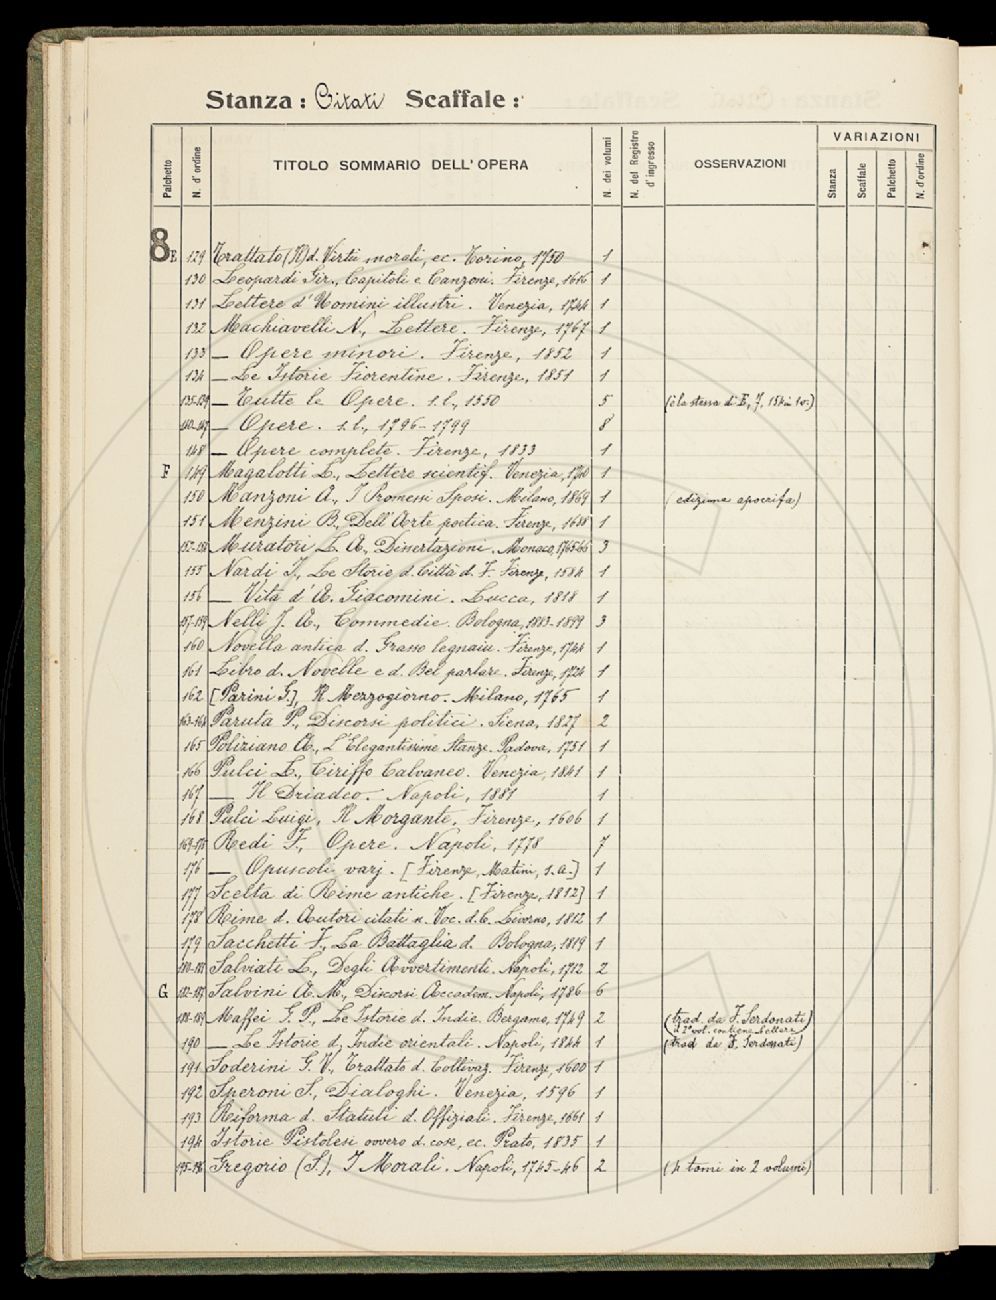 Stanza: Citati Scaffale:
Palchetto N. d'ordine TITOLO SOMMARIO DELL'OPERA N. dei volumi N. del Registro d'ingresso OSSERVAZIONI VARIAZIONI Stanza Scaffale Palchetto N. d'ordine
8 E 129 Trattato (Il) d. Virtù morali, ec. Torino, 1750 1
130 Leopardi Gir., Capitoli e Canzoni. Firenze, 1616 1
131 Lettere d'Uomini illustri. Venezia, 1744 1
132 Machiavelli N., Lettere. Firenze, 1767 1
133 — Opere minori. Firenze, 1852 1
134 — Le Istorie Fiorentine. Firenze, 1851 1
135-139 — Tutte le Opere. s.l., 1550 5 (è la stessa di E, 7, 154 in 10:)
140-147 — Opere. s.l., 1796-1799 8
148 — Opere complete. Firenze, 1833 1
F 149 Magalotti L., Lettere scientif. Venezia, 1740 1
150 Manzoni A., I Promessi Sposi. Milano, 1869 1 (edizione apocrifa)
151 Menzini B., Dell'Arte poetica. Firenze, 1688 1
152-154 Muratori L. A., Dissertazioni. Monaco, 1765-66 3
155 Nardi J., Le Storie d. Città d. F. Firenze, 1584 1
156 — Vita d'A. Giacomini. Lucca, 1818 1
157-159 Nelli J. A., Commedie. Bologna, 1883-1899 3
160 Novella antica d. Grasso legnaiu. Firenze, 1744 1
161 Libro d. Novelle e d. Bel parlare. Firenze, 1724 1
162 [Parini G.], Il Mezzogiorno. Milano, 1765 1
163-164 Paruta P., Discorsi politici. Siena, 1827 2
165 Poliziano A., L'Elegantissime Stanze. Padova, 1751 1
166 Pulci L., Ciriffo Calvaneo. Venezia, 1841 1
167 — Il Driadeo. Napoli, 1881 1
168 Pulci Luigi, Il Morgante, Firenze, 1606 1
169-175 Redi F., Opere. Napoli, 1778 7
176 — Opuscoli varj. [Firenze, Matini, s.a.] 1
177 Scelta di Rime antiche. [Firenze, 1812] 1
178 Rime d. Autori citati n. Voc. d. C. Livorno, 1812 1
179 Sacchetti F., La Battaglia d. Bologna, 1819 1
180-181 Salviati L., Degli Avvertimenti. Napoli, 1712 2
G 182-187 Salvini A. M., Discorsi Accadem. Napoli, 1786 6
188-189 Maffei G. P., Le Istorie d. Indie. Bergamo, 1749 2 (trad. da F. Serdonati)
il 2° vol. contiene Lettere
190 — Le Istorie d. Indie orientali. Napoli, 1844 1 (trad da F. Serdonati)
191 Soderini G. V., Trattato d. Coltivaz. Firenze, 1600 1
192 Speroni S., Dialoghi. Venezia, 1596 1
193 Riforma d. Statuti d. Offiziali. Firenze, 1661 1
194 Istorie Pistolesi ovvero d. cose, ec. Prato, 1835 1
195-196 Gregorio (S.), I Morali. Napoli, 1745-46 2 (4 tomi in 2 volumi)